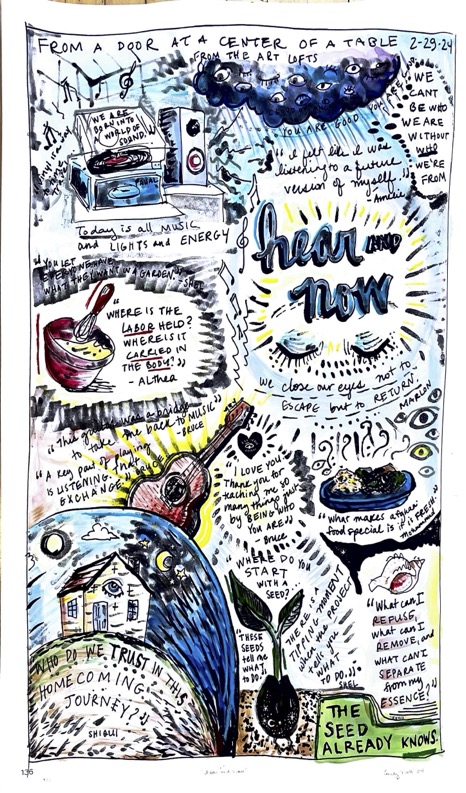 FROM A DOOR AT A CENTER OF A TABLE 2-29-24
FROM THE ART LOFTS
WE ARE
BORN INTO
WORLD OF
SOUND.
Today is all MUSIC
and LIGHTS and ENERGY
YOU ARE GOOD
WE
CANT
BE WHO
WE ARE
WITHOUT
WHO
WE'RE
FROM
"I felt like I was
listening to a future
version of myself."
hear AND
now
"YOU LET
EVERYONE HAVE
WHAT THEY WANT IN A GARDEN." -SHEL
"WHERE IS THE
LABOR HELD?
WHERE IS IT
CARRIED IN
THE BODY?"
- ALTHEA
we close our eyes not to
ESCAPE but to RETURN.
- MARLON
"This guitar was a bridge
to take me back to MUSIC"
- BRUCE
"A key part of playing
IS LISTENING.
EXCHANGE
"I LOVE YOU.
Thank you for
teaching me so
many things just
by BEING WHO
YOU ARE"
Bruce
"What makes afghan
food special is it is FRESH."
WHERE DO YOU
START
WITH A
SEED?
"THESE
SEEDS
tell me
WHAT
TO DO."
THERE IS A
TIPPING MOMENT
when the PROJECT
tells you
WHAT
TO DO."
SHEL
"What can I
REFUSE,
what can I
REMOVE, and
WHAT CAN I
SEPARATE
from my
ESSENCE?"
WHO DO WE TRUST IN THIS
HOMECOMING
JOURNEY?"
SHIQUI
THE
SEED
ALREADY KNOWS.
136